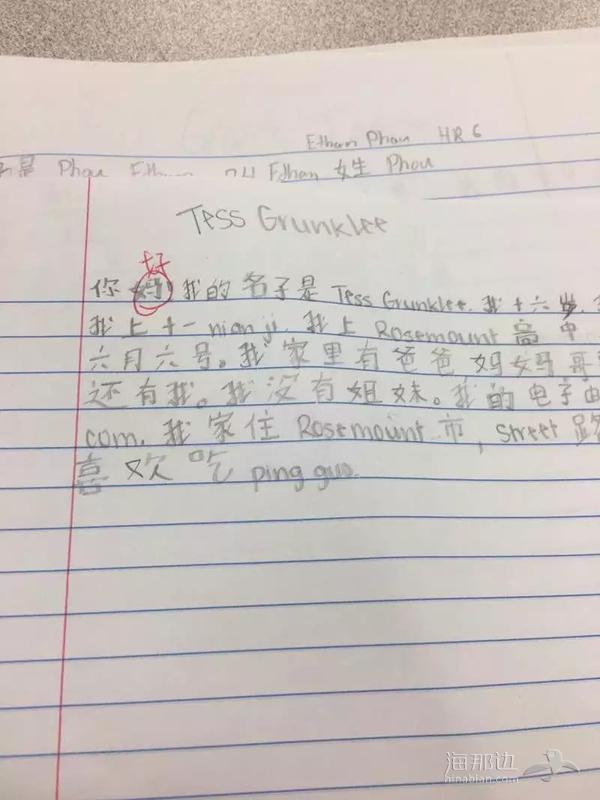 Ethan Phan HR 6
是 Phan Ethan 叫 Ethan 女生 Phan
Tess Grunklee
好
你妈 我的名子是 Tess Grunklee. 我十六岁.
我上十一 nian ji. 我上 Rosemount 高中
六月六号。我家里有爸爸妈妈哥
还有我。我没有姐妹。我的电子由
com. 我家住 Rosemount 市, Street 路
喜欢吃 ping guo.
海那边
hinabian.com